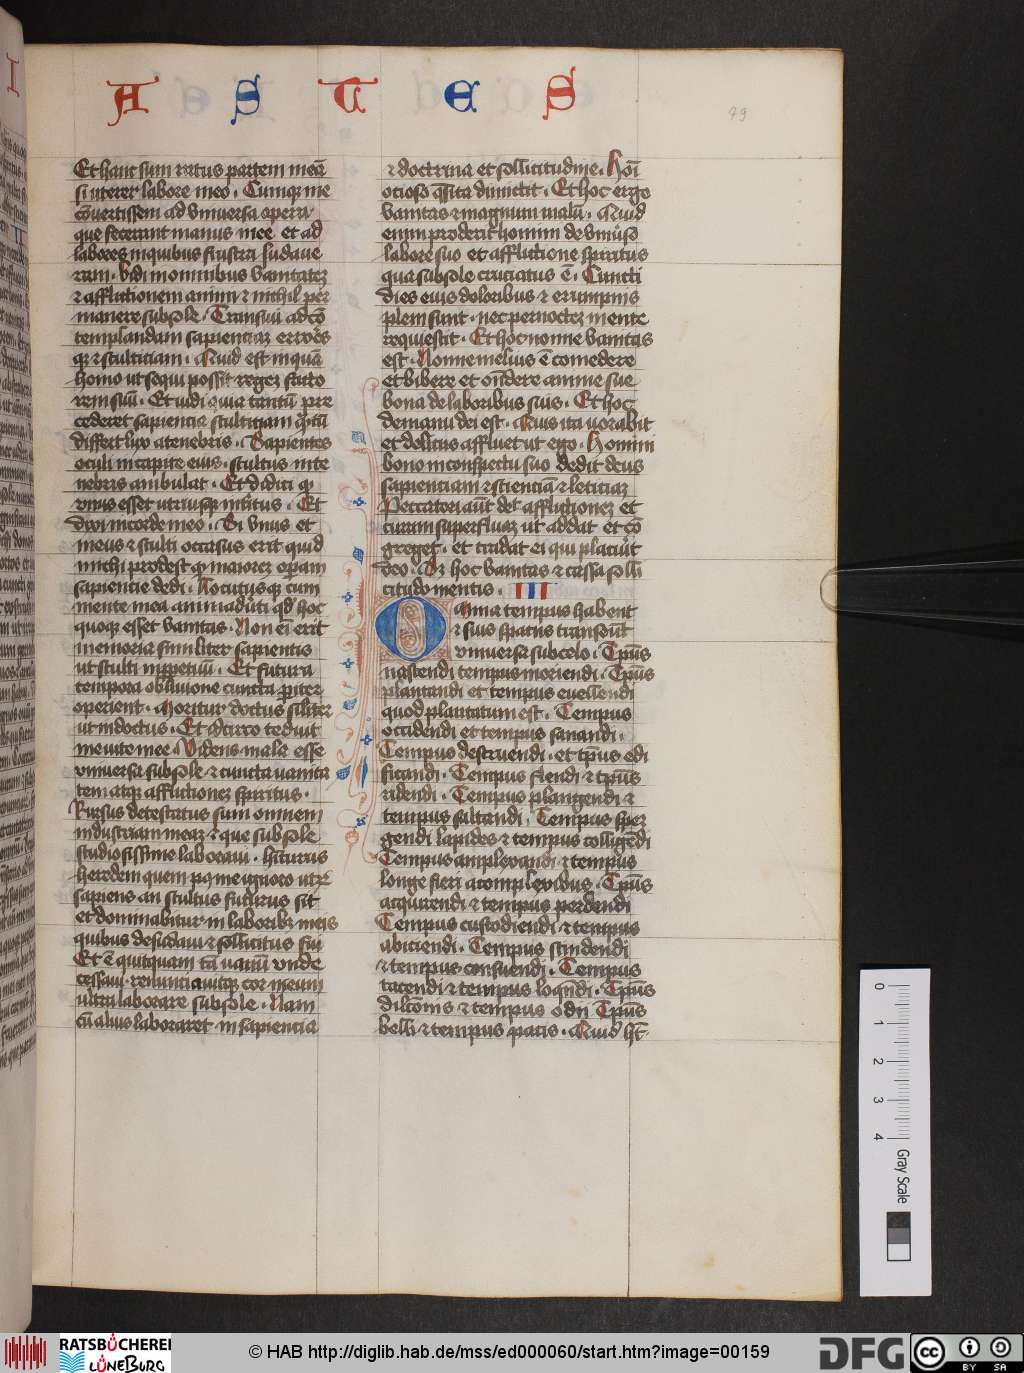 A S T E S
79
Et hanc sum ratus partem meā
si uterer labore meo . Cumque me
cōvertissem ad universa opera
que fecerant manus mee et ad
labores in quibus frustra sudave
ram . vidi in omnibus vanitatez
⁊ afflictionem animi ⁊ nichil per
manere sub sole . Transivi ad cō
templandam sapienciaz errores
qz ⁊ stulticiam . Quid est inquā
homo ut sequi possit regez facto
rem suū . Et vidi quia tantū pre
cederet sapiencia stulticiam q̄tū
differt lux a tenebris . Sapientis
oculi in capite eius . stultus in te
nebris ambulat . Et didici qz
unus esset utriusqz interitus . Et
dixi in corde meo . Si unus et
meus ⁊ stulti occasus erit quid
michi prodest qz maiorez operam
sapiencie dedi . Locutusqz cum
mente mea animadverti qd hoc
quoqz esset vanitas . Non eī erit
memoria similiter sapientis
ut stulti inperpetuū . Et futura
tempora oblivione cuncta pariter
operient . Moritur doctus siliter
ut indoctus . Et idcirco teduit
me vite mee . Videns mala esse
universa sub sole ⁊ cuncta vanita
tem atqz afflictionez spiritus .
Rursus detestatus sum omnem
industriam meaz ⁊ que sub sole
studiosissime laboravi . hiturus
heredem quem post me ignoro utrū
sapiens an stultus futurus sit
et dominabitur in laboribz meis
quibus desudavi ⁊ sollicitus fui
Et ē quicquam tā vanū unde
cessavi . renunciavitqz cor meum
ultra laborare sub sole . Nam
cū alius laboraret in sapiencia
⁊ doctrina et sollicitudine . Hoī
ocioso q̄sita dimittit . Et hoc ergo
vanitas ⁊ magnum malū . Quid
enim proderit homini de universo
labore suo et afflictione spiritus
qua sub sole cruciatus ē . Cuncti
dies eius doloribus ⁊ erumpnis
pleni sunt . nec per noctez mente
requiescit . Et hoc nonne vanitas
est . Nonne melius ē comedere
et bibere et ondere anime sue
bona de laboribus suis . Et hoc
de manu dei est . Quis ita vorabit
et deliciis affluet ut ego . Homini
bono in conspectu suo dedit deus
sapienciam ⁊ scienciā ⁊ leticiaz
Peccatori aūt det afflictionez et
curam superfluaz ut addat et cō
greget . et tradat ei qui placuit
deo . Sz hoc vanitas ⁊ cassa solli
citudo mentis . III
Omnia tempus habent
⁊ suis spaciis transeunt
universa sub celo . Tpūs
nascendi tempus moriendi . Tpūs
plantandi et tempus evellendi
quod plantatum est . Tempus
occidendi et tempus sanandi .
Tempus destruendi . et tpūs edi
ficandi . Tempus flendi ⁊ tpūs
ridendi . Tempus plangendi ⁊
tempus saltandi . Tempus sper
gendi lapides ⁊ tempus colligēdi
Tempus amplexandi ⁊ tempus
longe fieri a complexibus . Tpūs
acquirendi ⁊ tempus perdendi
Tempus custodiendi ⁊ tempus
abiciendi . Tempus scindendi
⁊ tempus consuendi . Tempus
tacendi ⁊ tempus loquēdi . Tpūs
dilcōnis ⁊ tempus odii Tpūs
belli ⁊ tempus pacis . Quid ht
0 1 2 3 4
Gray Scale
RATSBÜCHEREI
LÜNEBURG
© HAB http://diglib.hab.de/mss/ed000060/start.htm?image=00159
DFG
cc BY SA